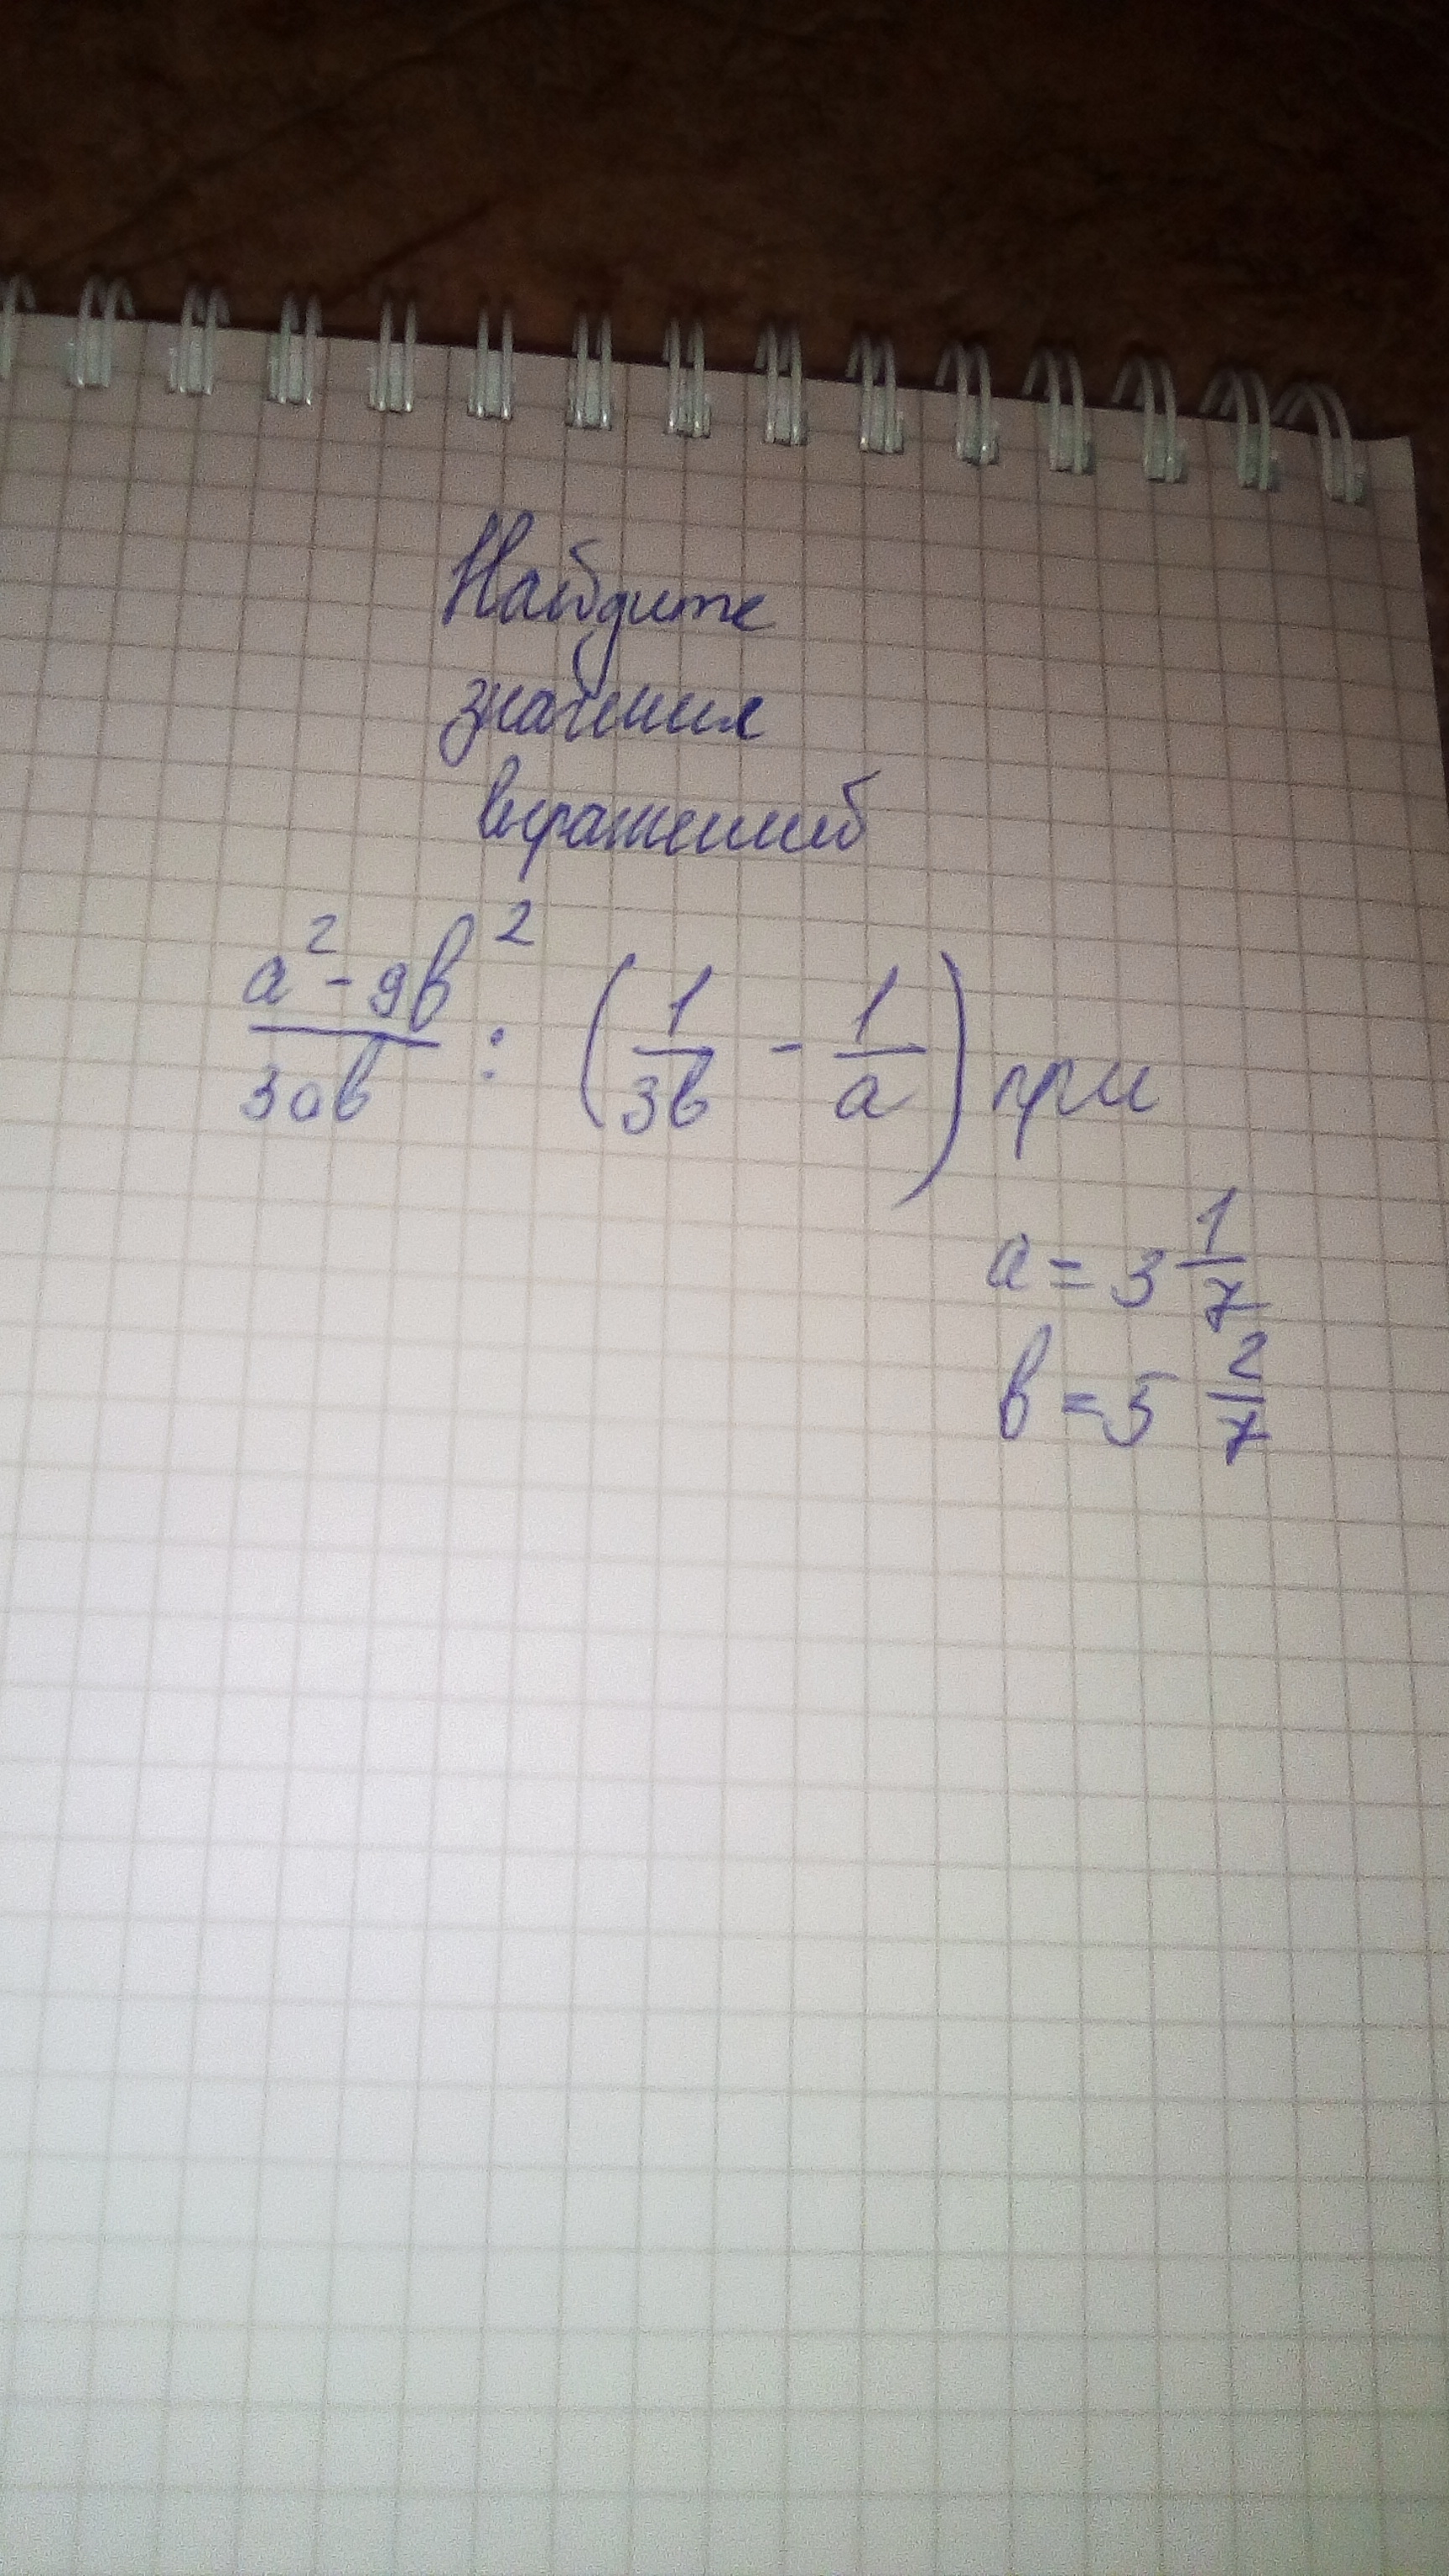 Найдите
значения
выражений
a² - 9b² / 3ab : (1/3b - 1/a) при
a = 3 1/7
b = 5 2/7